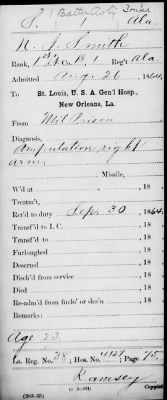 S. 1 Batt'n Art'y Ala
N. J. Smith
Rank, 1st Co. B, 1 Reg't Ala.
Admitted Aug. 26, 1864,
To St. Louis, U. S. A. Gen'l Hosp.,
New Orleans, La.
From Mil Prison
Diagnosis,
Amputation right
arm.
Missile,
W'd at , 18
Treatm't,
Ret'd to duty Sept. 30, 1864.
Transf'd to I. C. , 18
Transf'd to , 18
Furloughed , 18
Deserted , 18
Disch'd from service , 18
Died , 18
Re-adm'd from furlo' or des'n , 18
Remarks:
Age 23.
La. Reg. No. 38; Hos. No. 4127; Page 75
Ramsey
Copyist.